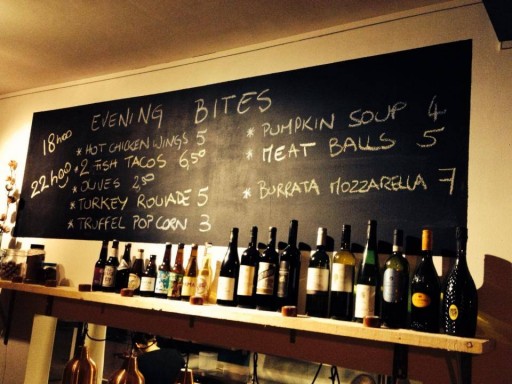 EVENING BITES
18h00
22h00
* HOT CHICKEN WINGS 5
* 2 FISH TACOS 6,50
* OLIVES 2,50
* TURKEY ROULADE 5
* TRUFFEL POPCORN 3
* PUMPKIN SOUP 4
* MEAT BALLS 5
* BURRATA MOZZARELLA 7